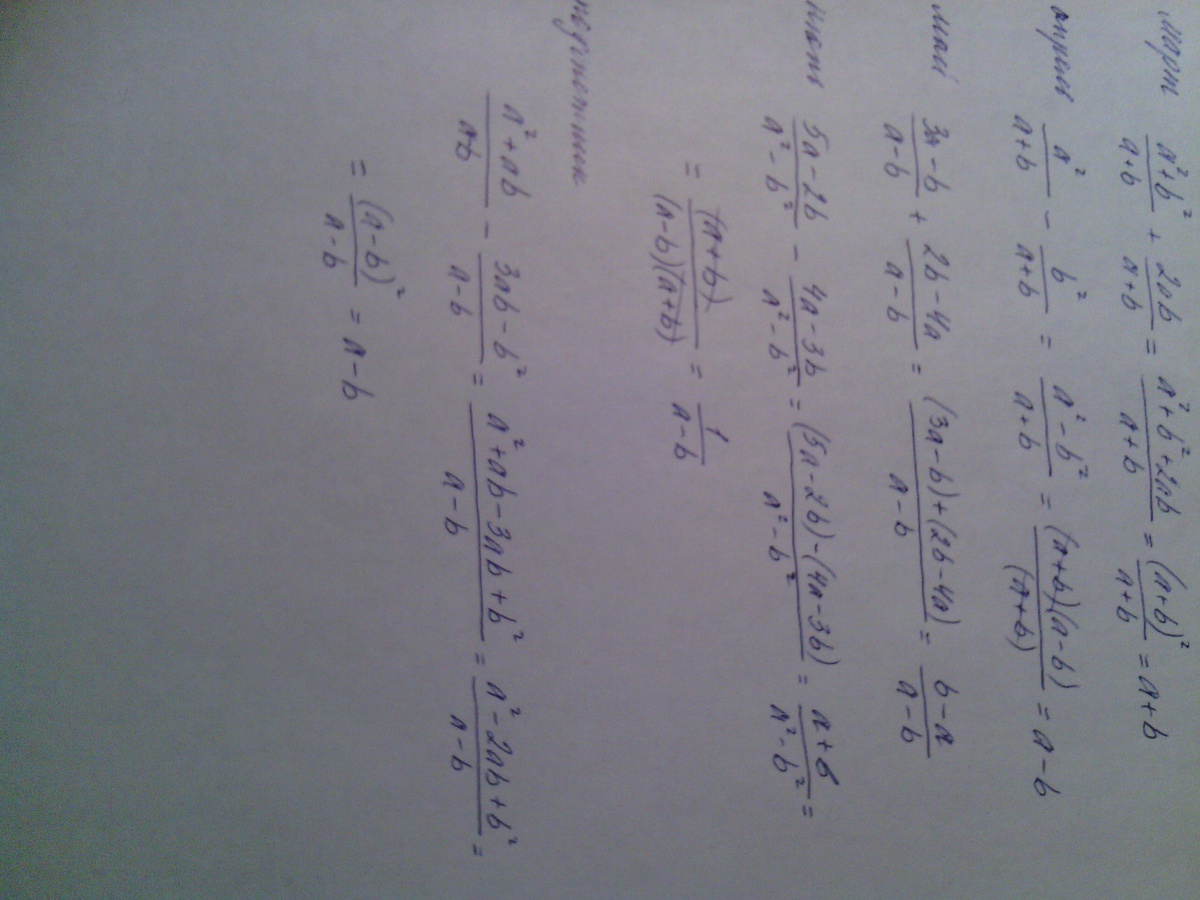 март (a²+b²)/(a+b) + 2ab/(a+b) = (a²+b²+2ab)/(a+b) = (a+b)²/(a+b) = a+b
апрель a²/(a+b) − b²/(a+b) = (a²−b²)/(a+b) = (a+b)(a−b)/(a+b) = a−b
май (3a−b)/(a−b) + (2b−4a)/(a−b) = ((3a−b)+(2b−4a))/(a−b) = (b−a)/(a−b)
июнь (5a−2b)/(a²−b²) − (4a−3b)/(a²−b²) = ((5a−2b)−(4a−3b))/(a²−b²) = (a+b)/(a²−b²) =
= (a+b)/((a−b)(a+b)) = 1/(a−b)
(a²+ab)/(a+b) − (3ab−b²)/(a−b) = (a²+ab−3ab+b²)/(a−b) = (a²−2ab+b²)/(a−b) =
= (a−b)²/(a−b) = a−b